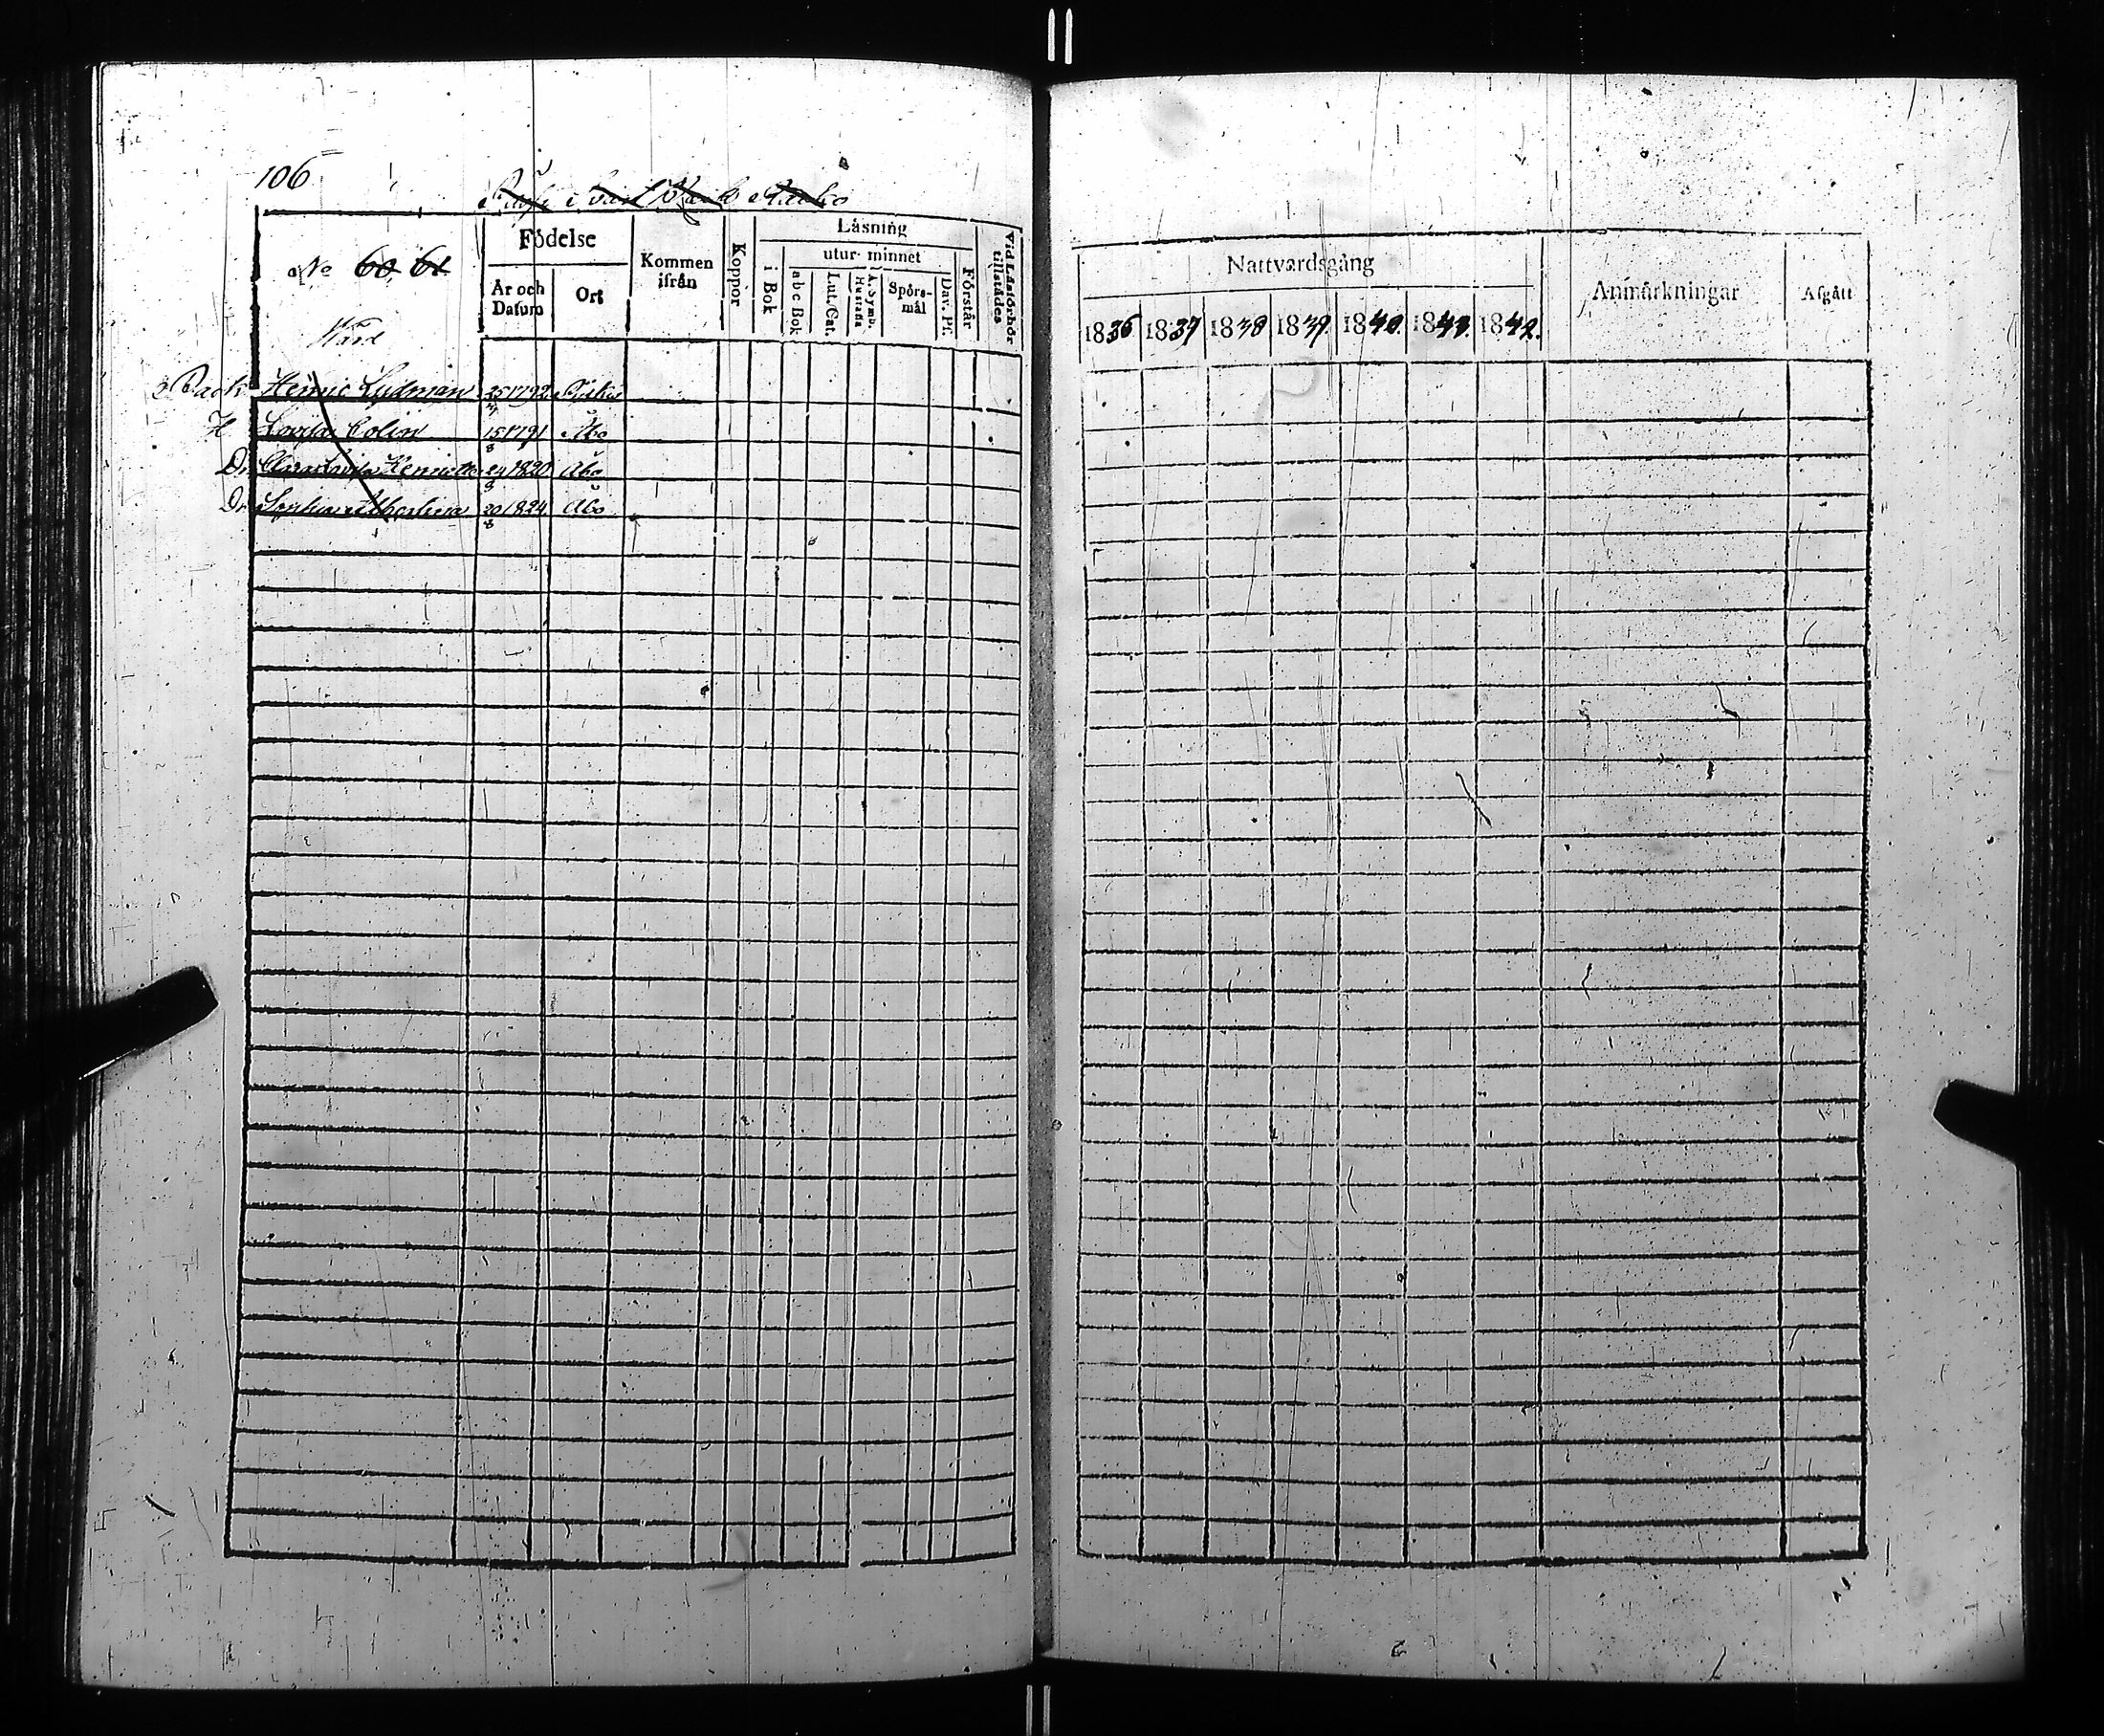 106
No 60 61
Wärd
Födelse
Läsning
utur minnet
År och Datum
Ort
Kommen ifrån
Koppor
i Bok
abc Bok
Lut. Cat.
A. Symb. Hustafla
Spörs-mål
Dav. Ps.
Förstår
Vid Läsförhör tillstädes
Henric Lydman 25/7 1792
H Lovisa Colin 15/8 1791 Åbo
Dr Lovisa Henrietta 24/8 1820 Åbo
Dr Sophia 20/8 1824 Åbo
Nattvardsgång
Anmärkningar
Afgått
1836 1837 1838 1839. 1840. 1841. 1842.